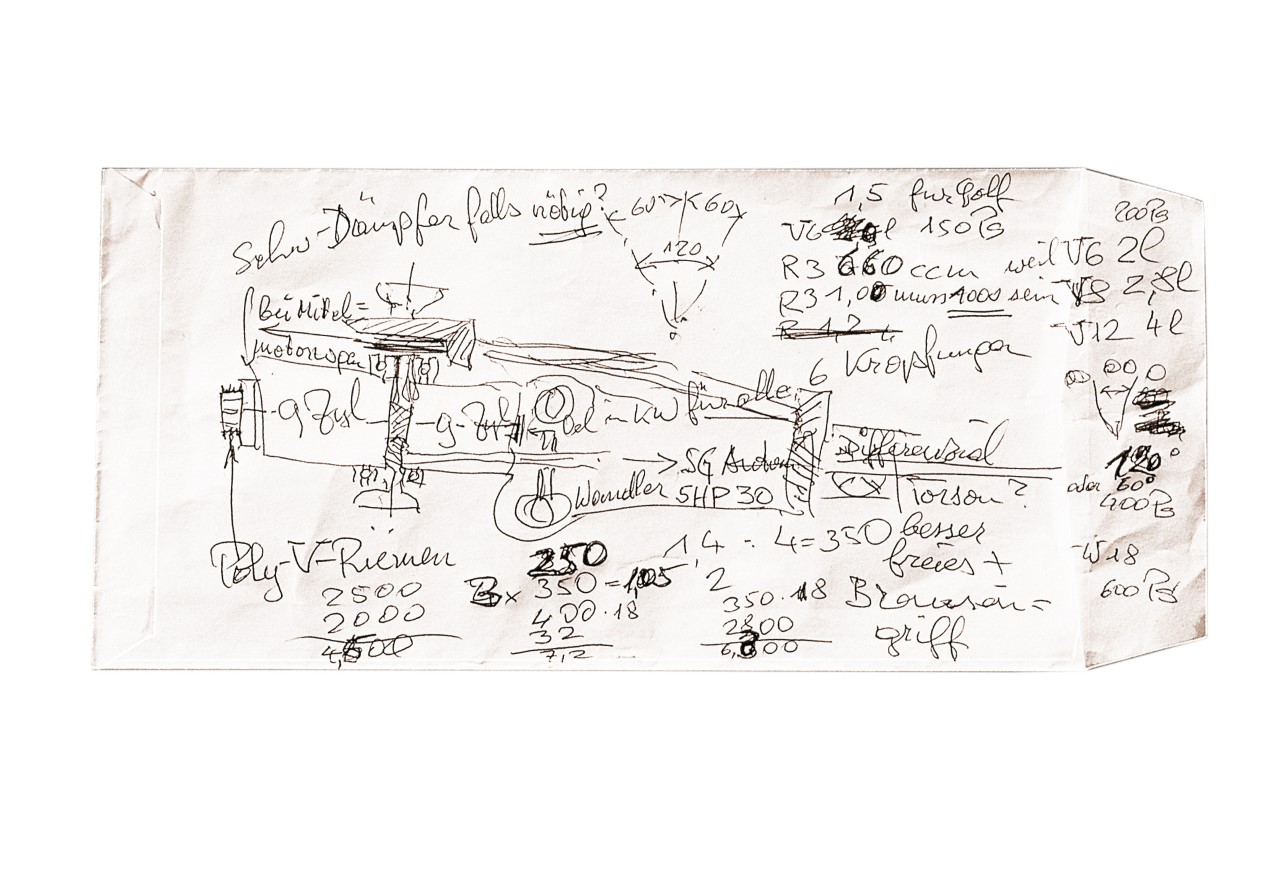 Schw-Dämpfer falls nötig?
60° 60
120
1,5 für Golf
V6 150 PS
R3 660 ccm weil V6 2l
R3 1,00 muss 1000 sein V8 2,8l
R 1,2
V12 4l
6 Kröpfungen
200 PS
bei Mittel=
motorwspan
9 Zyl 9 Zyl
Oel in KW für alle
→ 5G Autom
Wandler 5HP30
Differensial
Torson?
besser
freies +
Brownson=
griff
120°
oder 60°
400 PS
W18
600 PS
Poly-V-Riemen
2500
2000
4,500
250
350 = 1,05
400 · 18
32
7,2
1,4 : 4 = 350
2
350 · 18
2800
6,300